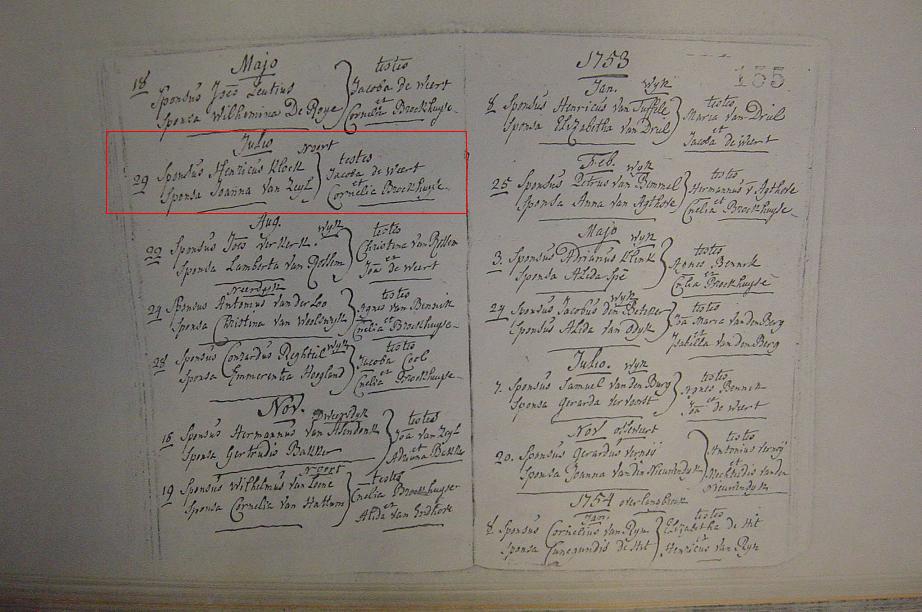 Majo
18 Sponsus Joes Leutius
Sponsa Wilhemina De Roye
testes
Jacoba de Weert
et
Cornelia Broekhuyse
Julio
29 Sponsus Henricus Klock
Sponsa Joanna van Zeyl
testes
Jacoba de Weert
et
Cornelia Broekhuyse
Aug.
Wyk
22 Sponsus Joes Verkerk
Sponsa Lamberta van
testes
Christina van
et
Joa de Weert
24 Sponsus Antonius van der Loo
Sponsa Christina van
testes
Agnes van Bennick
et
Cnelia Broekhuyse
Wyk
28 Sponsus Conradus
Sponsa Emmerentia Hoogland
testes
Jacoba Cool
et
Cnelia Broekhuyse
Nov.
16 Sponsus Hermannus van
Sponsa Gertrudis Bakker
testes
Joa van Zeyl
et
Adriana Bakker
19 Sponsus Wilhelmus van
Sponsa Cornelia van Hattum
testes
Cnelia Broekhuyse
et
Alida van
1753
155
Jan. Wyk
8 Sponsus Henricus van Tuffele
Sponsa Elizabetha van Drul
testes
Maria van Drul
et
Jacoba de Weert
Feb. Wyk
25 Sponsus Petrus van Bemmel
Sponsa Anna van Agthove
testes
Hermannus v Agthove
et
Cnelia Broekhuyse
Majo
Wyk
3. Sponsus Adrianus Klink
Sponsa Alida Spé
testes
Agnes Bennek
et
Cnlia Broekhuyse
Wyk
24 Sponsus Jacobus den
Sponsus Alida van Dyk
testes
Joa Maria van den Burg
et
Isabella van den Berg
Julio. Wyk
7. Sponsus Samuel van den Burg
Sponsa Gerarda Vervoorst
testes
Agnes Bennek
et
Joa de Weert
Nov
20. Sponsus Gerardus Vernoij
Sponsa Joanna van den Nieuwendyk
testes
Antonius Vernoij
et
Mechtildis van den
Nieuwendyk
1754
Jan.
8 Sponsus Cornelius van Ryn
Sponsa Cunegundis de Hit
testes
Elizabetha de Hit
et
Henricus van Ryn